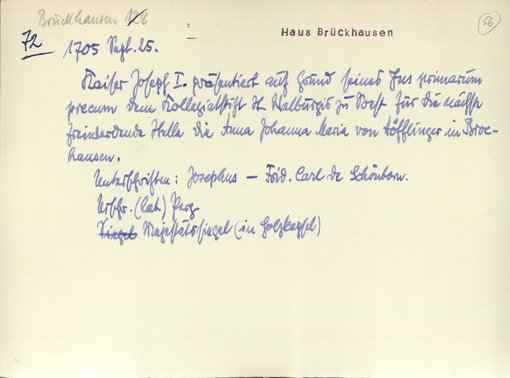 Brückhausen 128
Haus Brückhausen
56
72
1705 Sept. 25.
Kaiser Joseph I. präsentiert auf Grund seines Jus primarum
precum dem Kollegiatstift St. Walburgis zu Soest für die nächste
freiwerdende Stelle die Anna Johanna Maria von Höfflinger in Broc-
hausen.
Unterschriften: Josephus – Frid. Carl de Schönborn.
Urschr. (lat) Perg
Siegel Majestätssiegel (in Holzkapsel)